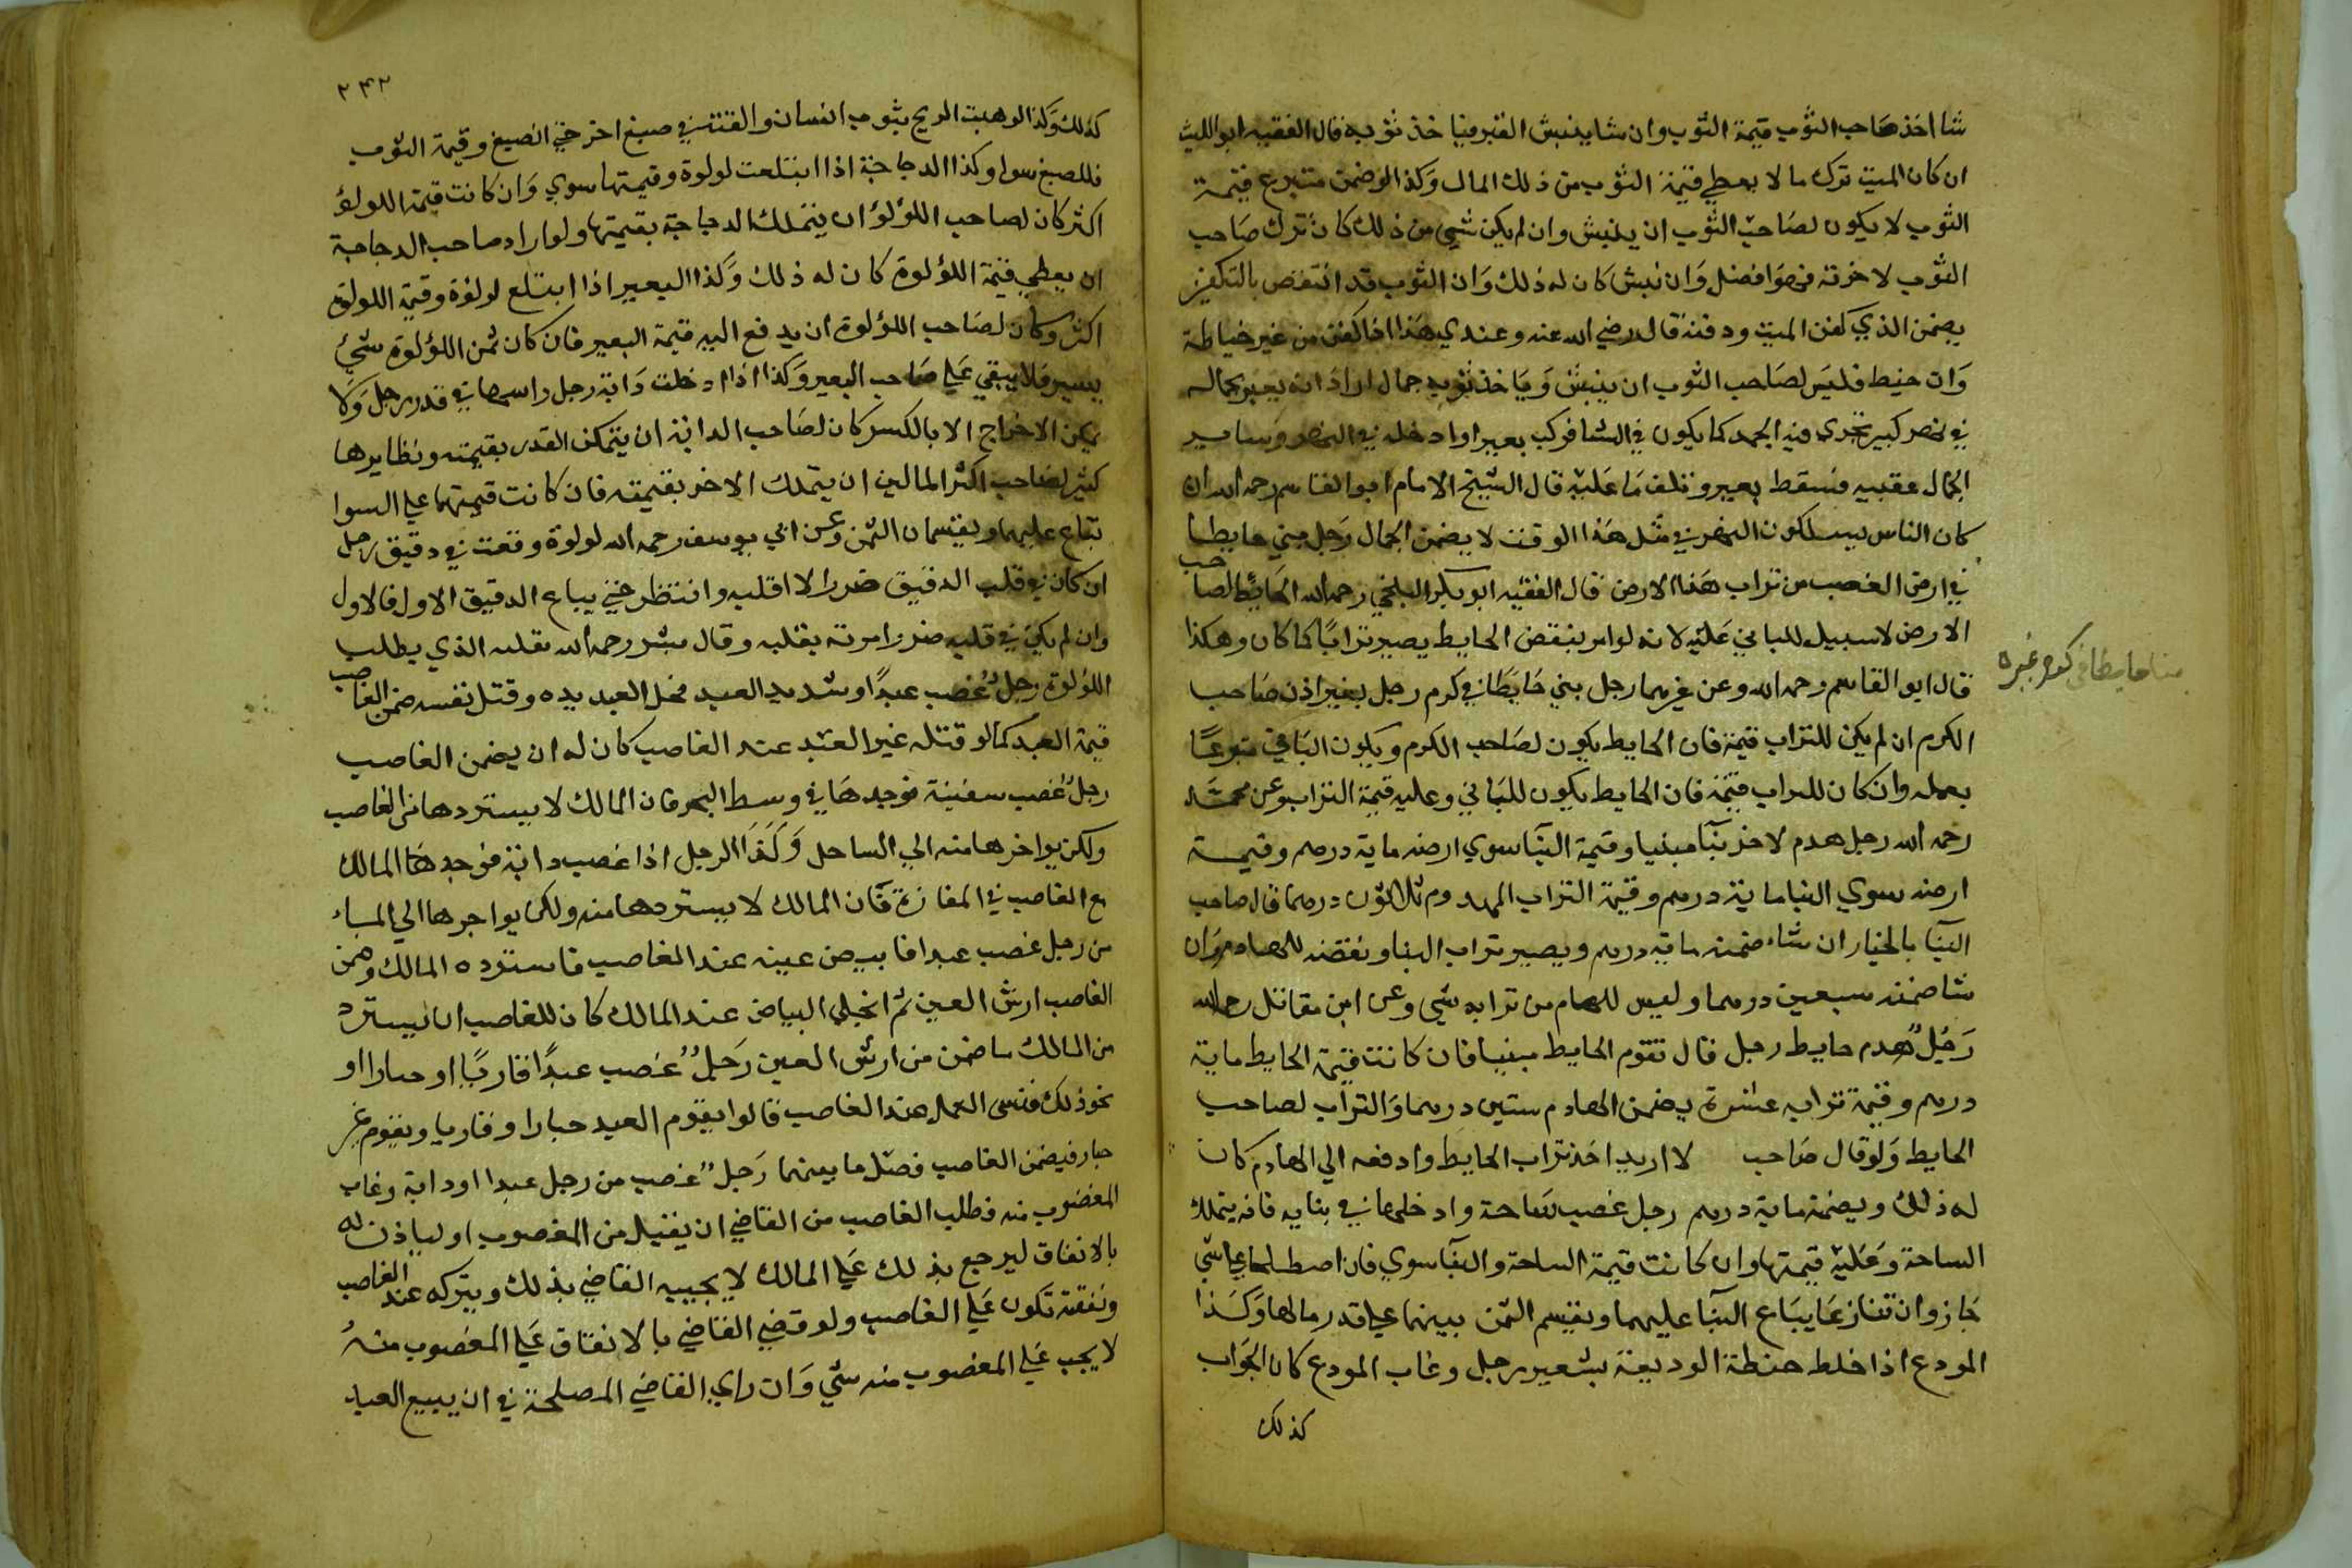 شا اخذ صاحب الثوب قيمة الثوب وان شا ينبش القبر فياخذ ثوبه قال الفقيه ابو الليث
ان كان الميت ترك مالا يعطي قيمة الثوب من ذلك المال وكذا لو ضمن متبرع قيمة
الثوب لا يكون لصاحب الثوب ان ينبش وان لم يكن شي من ذلك كان ترك صاحب
الثوب لاخرته فهو افضل وان نبش كان له ذلك وان الثوب قد انتقص بالتكفين
يضمن الذي كفن الميت ودفنه قال رضي الله عنه وعندي هذا اذا كفن من غير خياطة
وان خيط فليس لصاحب الثوب ان ينبش وياخذ ثوبه جمال اراد ان يعبر بجماله
في نهر كبير تجري فيه الجمد كما يكون في الشتا فركب بعيرا وادخله في النهر وساير
الجمال عقبيه فسقط بعير وتلف ما عليه قال الشيخ الامام ابو القاسم رحمه الله ان
كان الناس يسلكون النهر في مثل هذا الوقت لا يضمن الجمال رجل بني حايطا
في ارض الغصب من تراب هذا الارض قال الفقيه ابو بكر البلخي رحمه الله الحائط لصاحب
الارض لا سبيل للباني عليه لانه لو امر بنقض الحايط يصير ترابا كما كان وهكذا
قال ابو القاسم رحمه الله وعن غيرهما رجل بني حايطا في كرم رجل بغير اذن صاحب
الكرم ان لم يكن للتراب قيمة فان الحايط يكون لصاحب الكرم ويكون الباني متبرعا
بعمله وان كان للتراب قيمة فان الحايط يكون للباني وعليه قيمة التراب وعن محمد
رحمه الله رجل هدم لاخر بنا مبنيا وقيمة البنا سوي ارضه ماية درهم وقيمة
ارضه سوي البنا ماية درهم وقيمة التراب المهدوم ثلاثون درهما قال صاحب
البنا بالخيار ان شاء ضمنه ماية درهم ويصير تراب البنا ونقضه للهادم وان
شا ضمنه سبعين درهما وليس للهادم من ترابه شي وعن ابن مقاتل رحمه الله
رجل هدم حايط رجل قال تقوم الحايط مبنيا فان كانت قيمة الحايط ماية
درهم وقيمة ترابه عشرة يضمن الهادم ستين درهما والتراب لصاحب
الحايط ولو قال صاحب لا اريد اخذ تراب الحايط وادفعه الي الهادم كان
له ذلك ويضمنه ماية درهم رجل غصب ساحة وادخلها في بنايه فانه يتملك
الساحة وعليه قيمتها وان كانت قيمة الساحة والبنا سوي فان اصطلحا علي شي
جاز وان تنازعا يباع البنا عليهما ويقسم الثمن بينهما علي قدر مالهما وكذا
المودع اذا خلط حنطة الوديعة بشعير رجل وغاب المودع كان الجواب
كذلك
بنا حايطا في كرم غيره
٢٤٢
كذلك وكذا لو هبت الريح بثوب انسان والقته في صبغ اخر حتي انصبغ وقيمة الثوب
والصبغ سوا وكذا الدجاجة اذا ابتلعت لولوة وقيمتها سوي وان كانت قيمة اللولؤ
اكثر كان لصاحب اللؤلؤ ان يتملك الدجاجة بقيمتها ولو اراد صاحب الدجاجة
ان يعطي قيمة اللؤلوة كان له ذلك وكذا البعير اذا ابتلع لولؤة وقيمة اللولؤة
اكثر وكان لصاحب اللؤلوة ان يدفع اليه قيمة البعير فان كان ثمن اللؤلوة شئ
يسير فلا يبقي علي صاحب البعير وكذا اذا ادخلت دابة رجل راسها في قدر رجل ولا
يمكن الاخراج الا بالكسر كان لصاحب الدابة ان يتملك القدر بقيمته ونظايرها
كثير لصاحب اكثر المالين ان يتملك الاخر بقيمته فان كانت قيمتهما علي السوا
تباع عليهما ويقتسمان الثمن وعن ابي يوسف رحمه الله لولوة وقعت في دقيق رجل
ان كان في قلب الدقيق ضررا لا اقلبه وانتظر حتي يباع الدقيق الاول فالاول
وان لم يكن في قلبه ضرر امرته بقلبه وقال بشر رحمه الله يقلبه الذي يطلب
اللؤلؤة رجل غصب عبدا وشد يد العبد فخل العبد يده وقتل نفسه ضمن الغاصب
قيمة العبد كما لو قتله غير العبد عند الغاصب كان له ان يضمن الغاصب
رجل غصب سفينة فوجدها في وسط البحر فان المالك لا يستردها من الغاصب
ولكن يواجرها منه الي الساحل وكذا الرجل اذا غصب دابة فوجدها المالك
مع الغاصب في المفازة فان المالك لا يستردها منه ولكن يواجرها الي المساء
من رجل غصب عبدا فابيض عينه عند الغاصب فاسترده المالك وضمن
الغاصب ارش العين ثم انجلي البياض عند المالك كان للغاصب ان يسترد
من المالك ما ضمن من ارش العين رجل غصب عبدا قاريا او حبارا او
نحو ذلك فنسي العمل عند الغاصب قالوا يقوم العبد حبارا وقاريا ويقوم غير
حبار فيضمن الغاصب فضل ما بينهما رجل غصب من رجل عبدا او دابة وغاب
المغصوب منه فطلب الغاصب من القاضي ان يقبل من المغصوب او لياذن له
بالانفاق ليرجع بذلك علي المالك لا يجيبه القاضي بذلك ويتركه عند الغاصب
ونفقته تكون علي الغاصب ولو قضي القاضي بالانفاق علي المغصوب منه
لا يجب علي المغصوب منه شي وان راي القاضي المصلحة في ان يبيع العبد